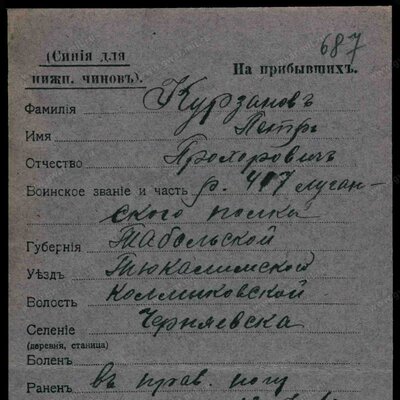 687
(Синія для
нижн. чиновъ).
На прибывшихъ.
Фамилія Курзановъ
Имя Петръ
Отчество Прохоровичъ
Воинское званіе и часть р. 417 луган-
ского полка
Губернія Табольской
Уѣздъ Тюкалимской
Волость Колмиковской
Селеніе Черняевска
(деревня, станица)
Боленъ
Раненъ въ прав. ногу